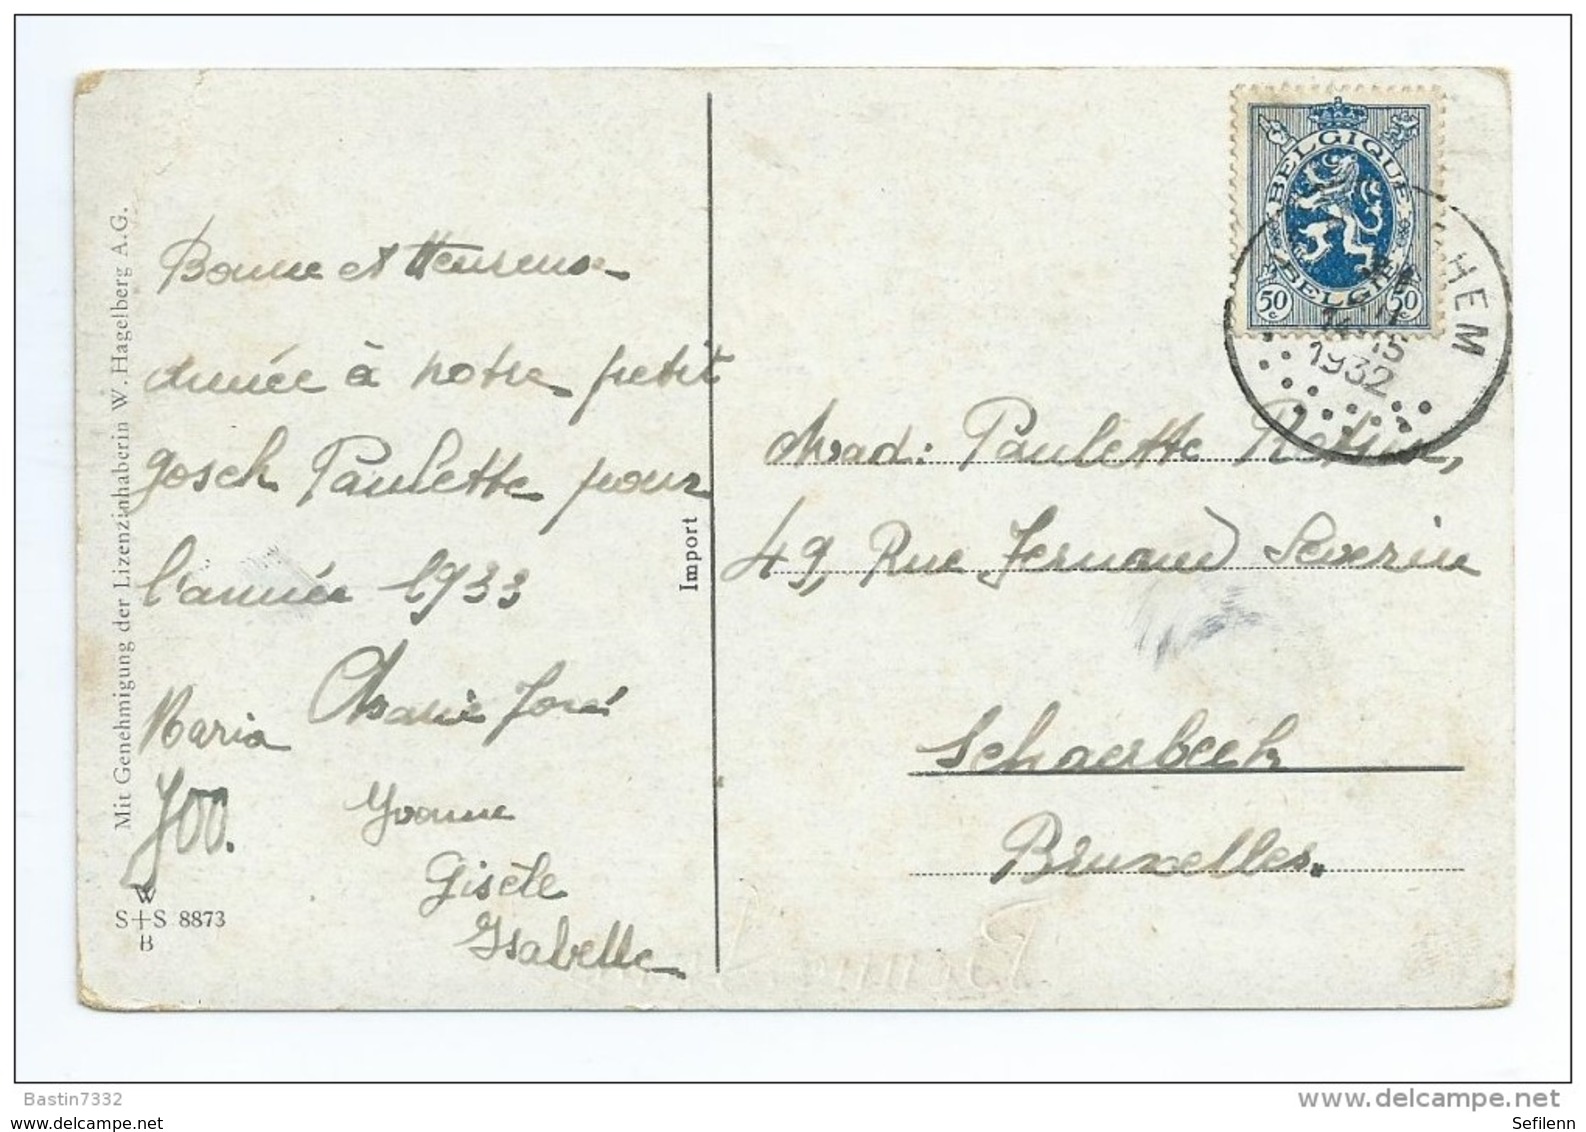 Bonne et Heureuse
année à notre petit
gosch Paulette pour
l'année 1933
Marie José
Maria
Joo.
Yvonne
Gisèle
Isabelle
Mit Genehmigung der Lizenzinhaberin W. Hagelberg A.G.
W
S+S 8873
B
Import
BELGIQUE
BELGIË
50 c
50 c
HEM
1932
Mad: Paulette
49, Rue Fernand Severin
Schaerbeek
Bruxelles.
Bonne Année
Bastin7332
www.delcampe.net
Sefilenn